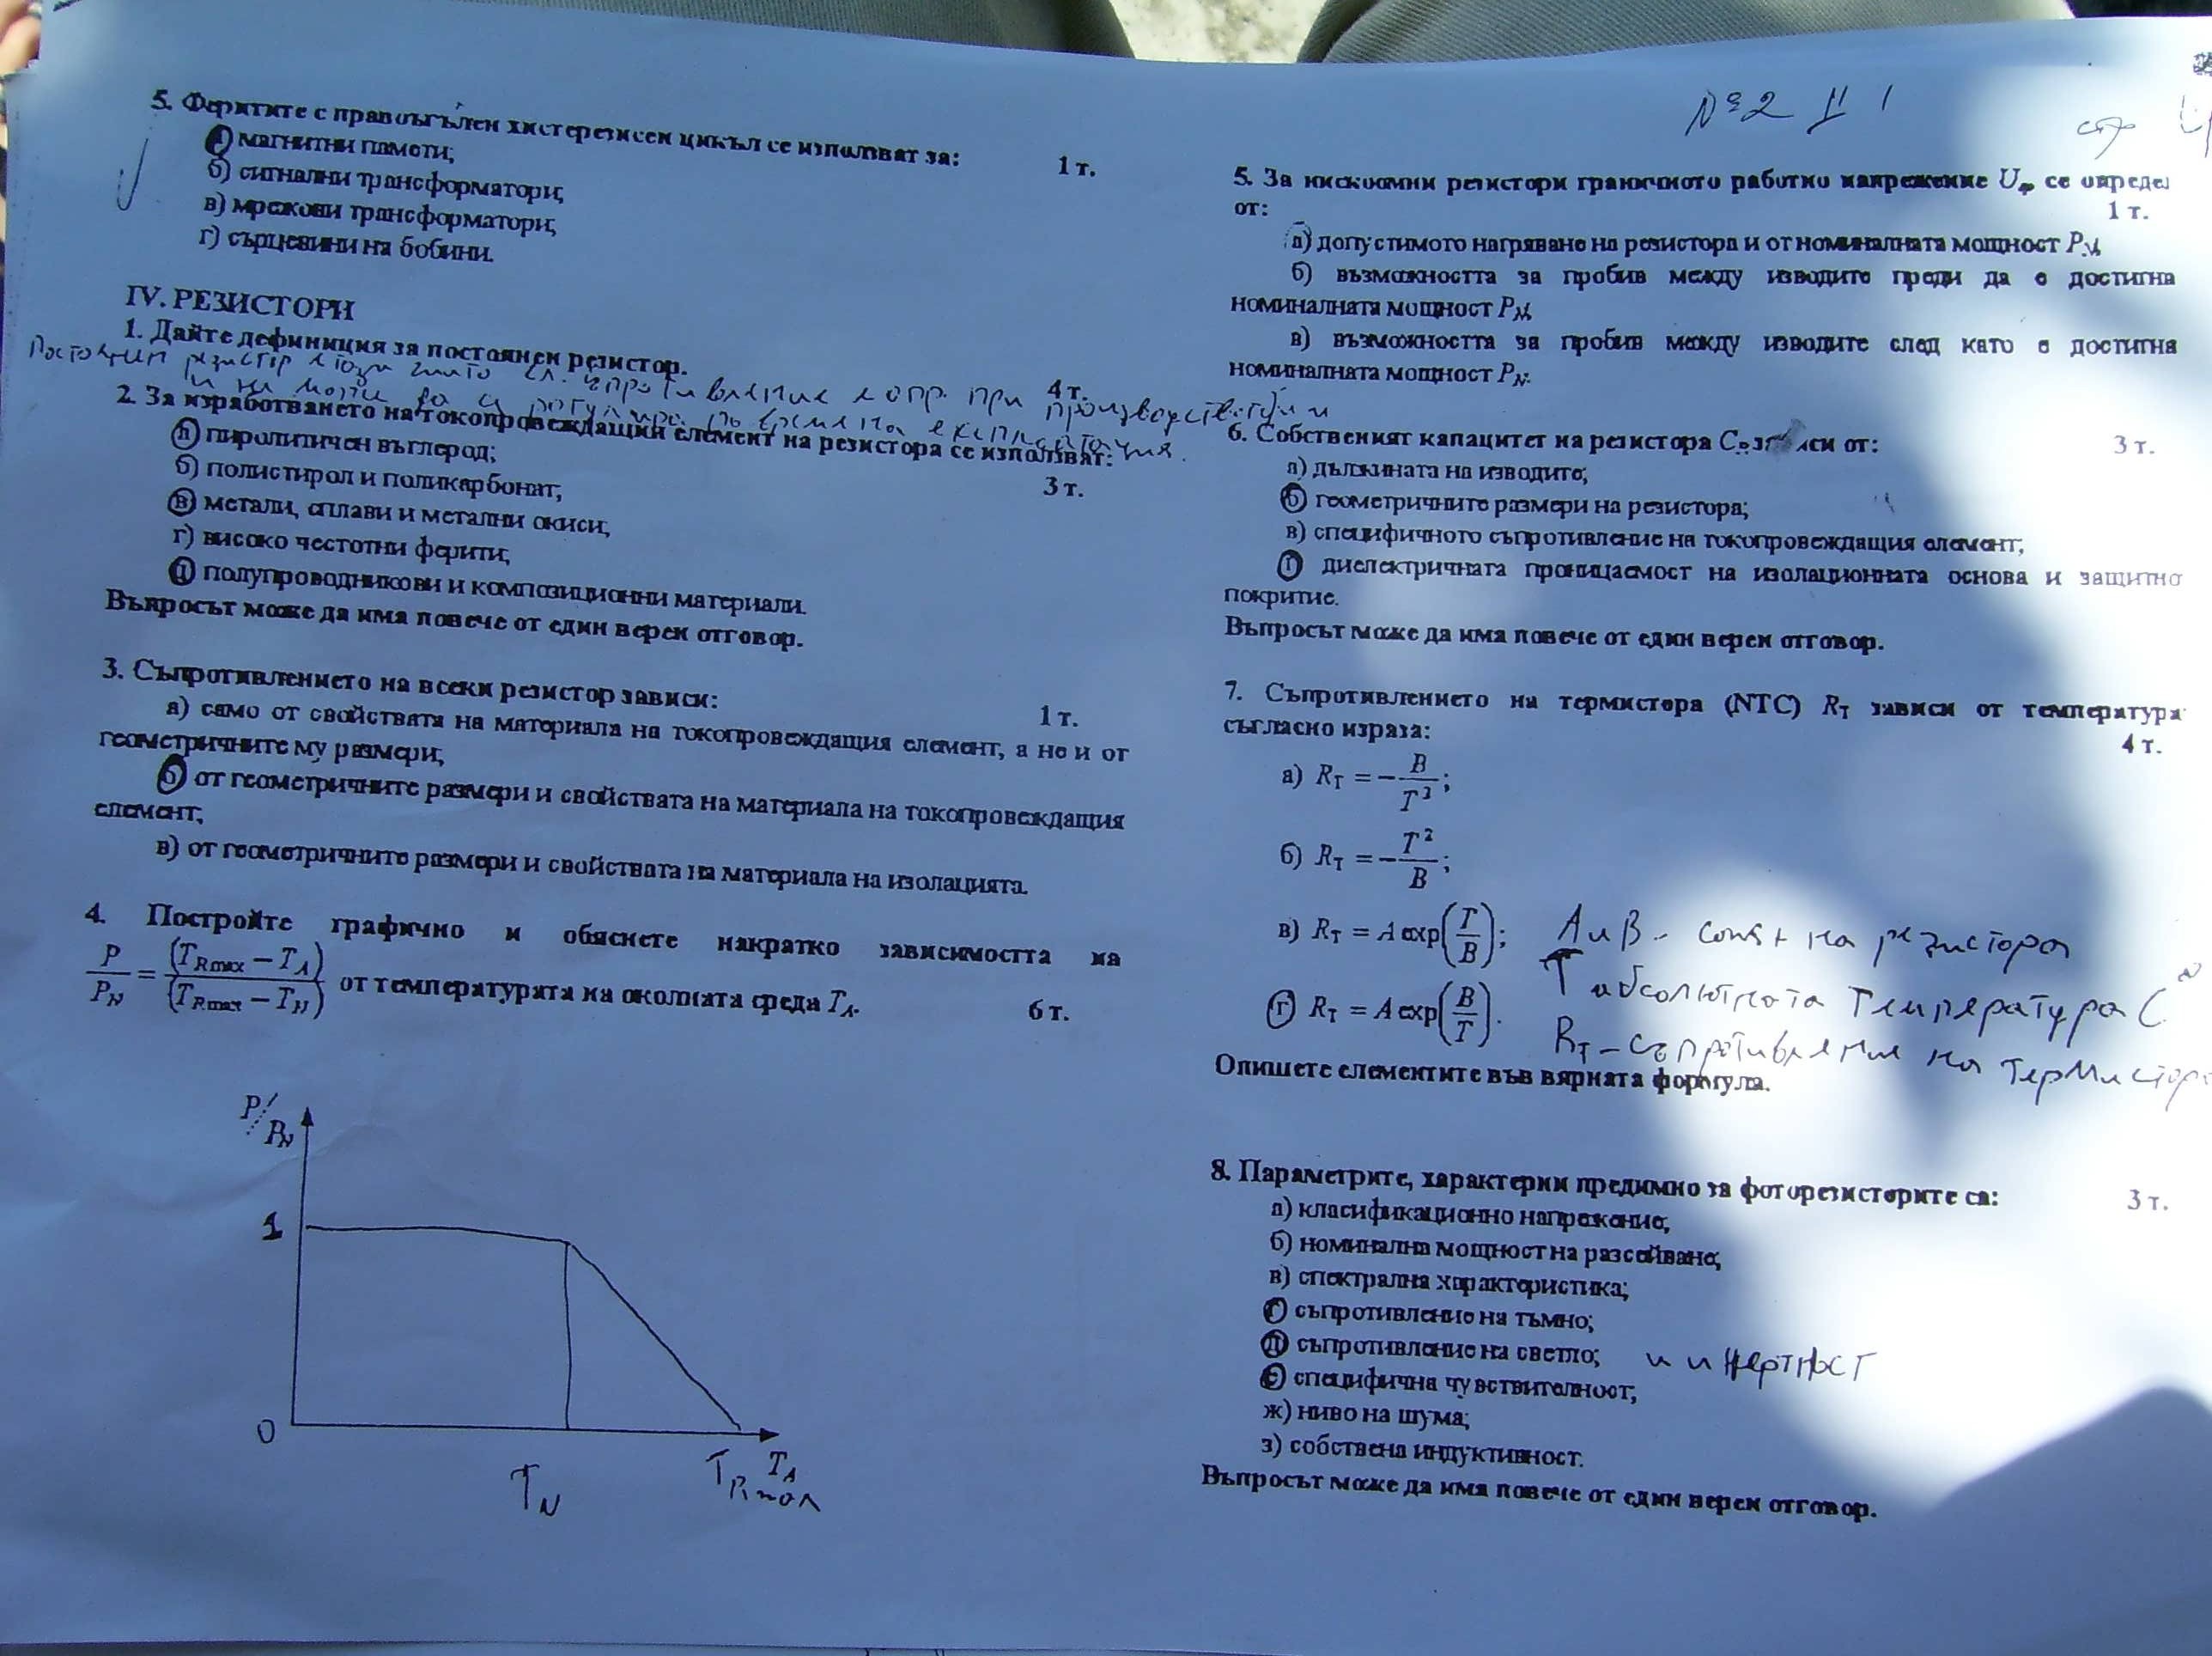 5. Феритите с правоъгълен хистерезисен цикъл се използват за: 1 т.
а) магнитни памети;
б) сигнални трансформатори;
в) мрежови трансформатори;
г) сърцевини на бобини.
IV. РЕЗИСТОРИ
1. Дайте дефиниция за постоянен резистор.
4 т.
2. За изработването на токопровеждащия елемент на резистора се използват:
3 т.
а) пиролитичен въглерод;
б) полистирол и поликарбонат;
в) метали, сплави и метални окиси;
г) високо честотни ферити;
д) полупроводникови и композиционни материали.
Въпросът може да има повече от един верен отговор.
3. Съпротивлението на всеки резистор зависи: 1 т.
а) само от свойствата на материала на токопровеждащия елемент, а не и от
геометричните му размери;
б) от геометричните размери и свойствата на материала на токопровеждащия
елемент;
в) от геометричните размери и свойствата на материала на изолацията.
4. Постройте графично и обяснете накратко зависимостта на
P/P_N = (T_Rmax − T_A)/(T_Rmax − T_N) от температурата на околната среда T_A. 6 т.
P/P_N
1
0
T_N
T_Rmax
T_A
№2 II 1
стр
5. За нискоомни резистори граничното работно напрежение U_гр се опреде
от: 1 т.
а) допустимото нагряване на резистора и от номиналната мощност P_N;
б) възможността за пробив между изводите преди да е достигна
номиналната мощност P_N;
в) възможността за пробив между изводите след като е достигна
номиналната мощност P_N.
6. Собственият капацитет на резистора C_R зависи от: 3 т.
а) дължината на изводите;
б) геометричните размери на резистора;
в) специфичното съпротивление на токопровеждащия елемент;
г) диелектричната проницаемост на изолационната основа и защитно
покритие.
Въпросът може да има повече от един верен отговор.
7. Съпротивлението на термистора (NTC) R_T зависи от температура
съгласно израза: 4 т.
а) R_T = −B/T²;
б) R_T = −T²/B;
в) R_T = A exp(T/B); A и B - const на резистора
г) R_T = A exp(B/T). T абсолютната температура C°
R_T – съпротивление на термистор
Опишете елементите във вярната формула.
8. Параметрите, характерни предимно за фоторезисторите са: 3 т.
а) класификационно напрежение;
б) номинална мощност на разсейване;
в) спектрална характеристика;
г) съпротивление на тъмно;
д) съпротивление на светло; и инертност
е) специфична чувствителност;
ж) ниво на шума;
з) собствена индуктивност.
Въпросът може да има повече от един верен отговор.